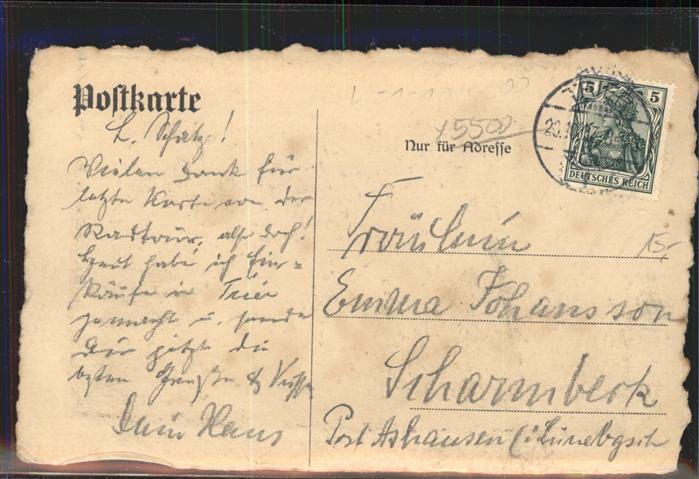 Postkarte
L. Schatz!
Vielen Dank für
letzte Karte von der
Radtour, also doch!
Heut habe ich Ein-
käufe in Trier
gemacht u. sende
Dir jetzt die
besten Grüße & Küsse
Dein Hans
x5500
Nur für Adresse
5 5
DEUTSCHES REICH
15,-
Fräulein
Emma Johansson
Scharmbeck
Post Ashausen (i. Lünebgsch